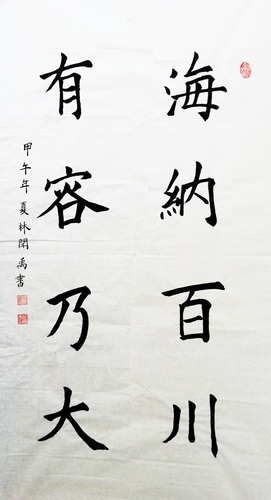 海納百川
有容乃大
甲午年夏林閑禹書